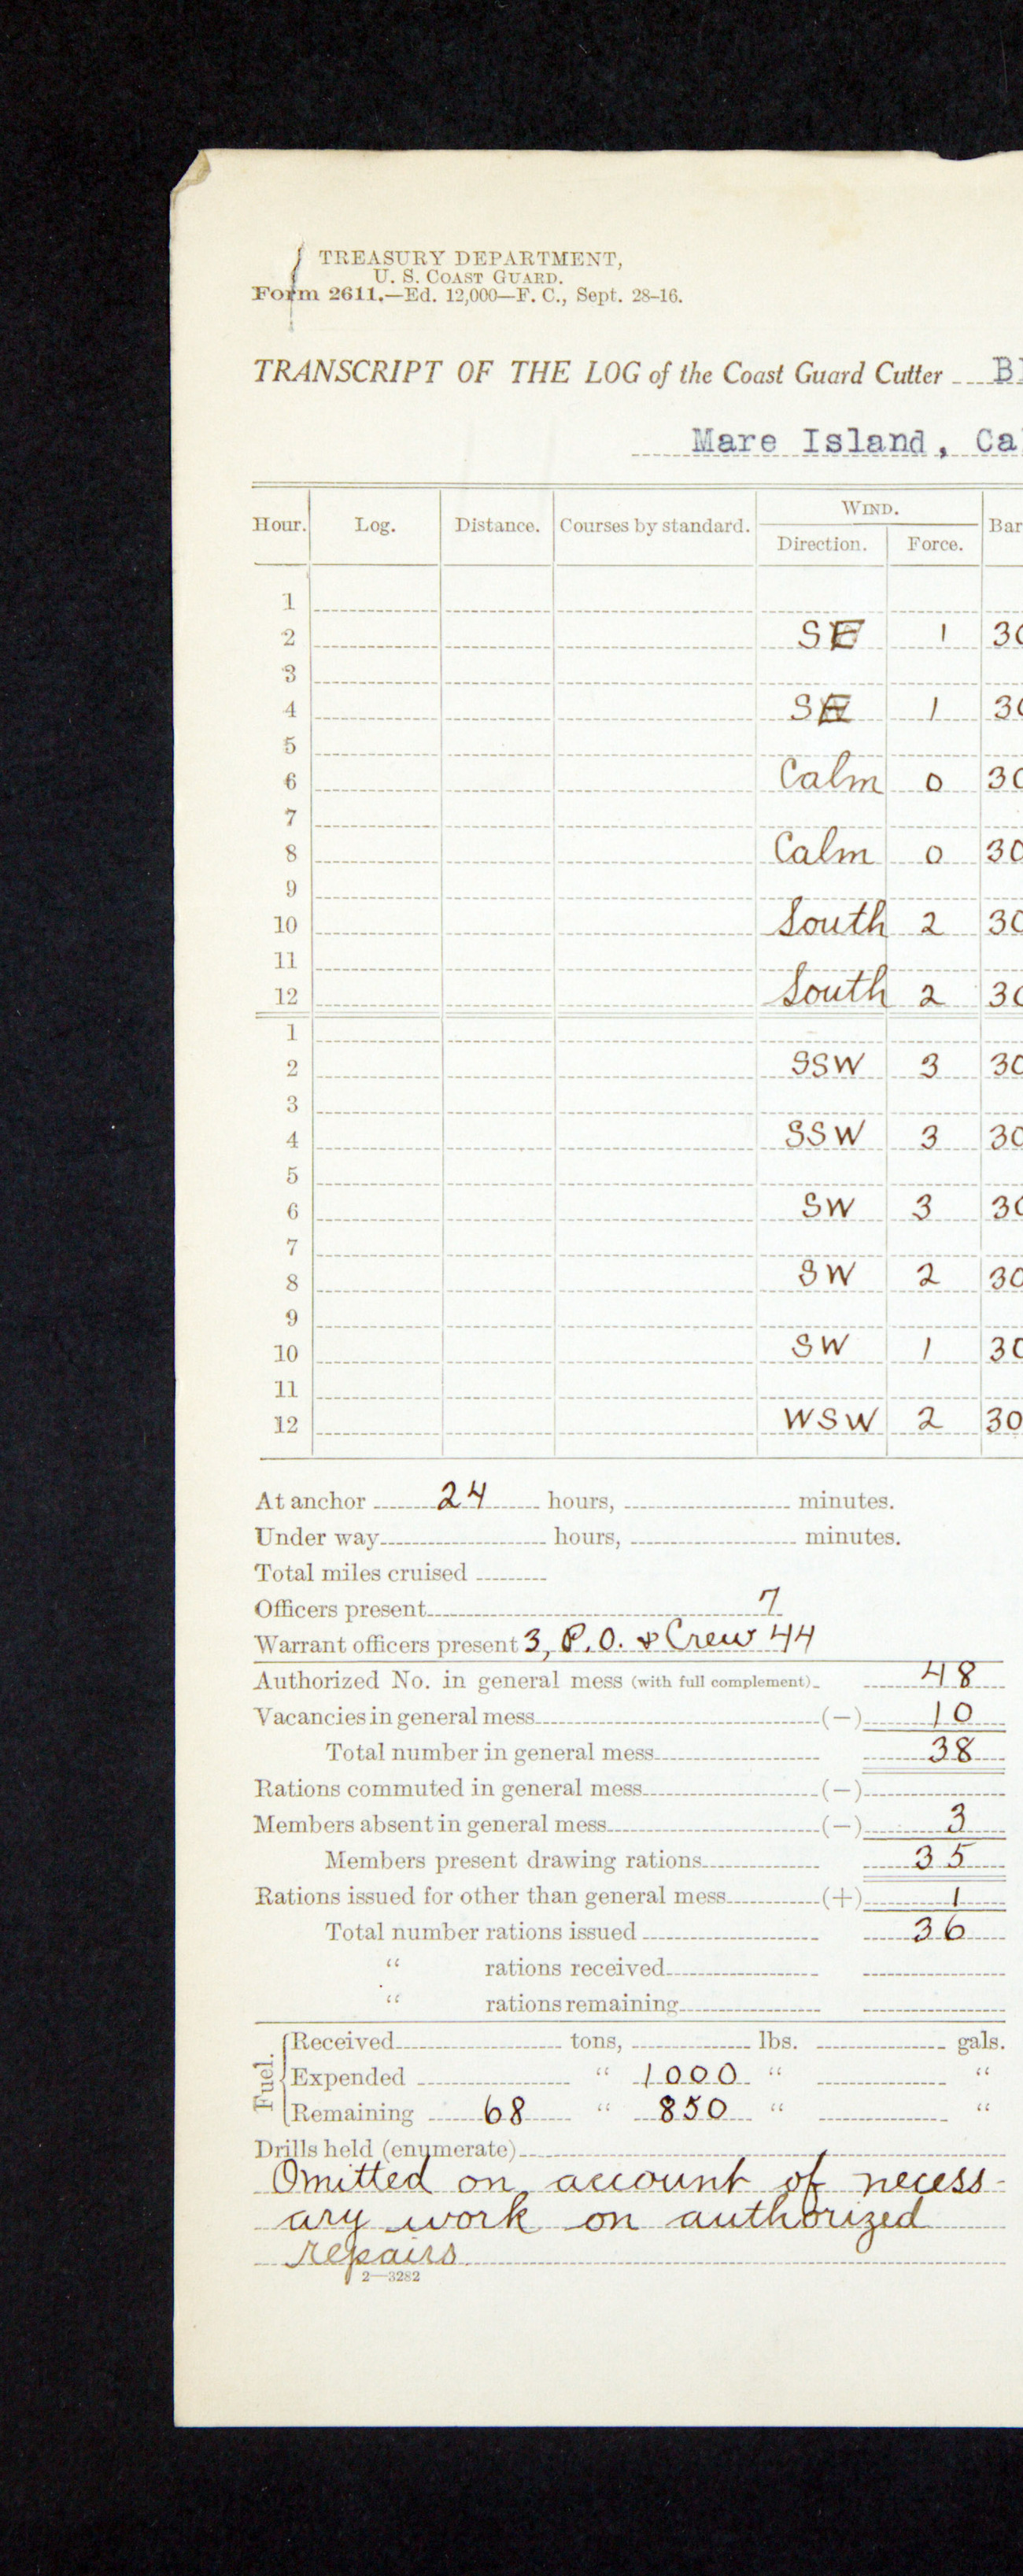 TREASURY DEPARTMENT,
U. S. COAST GUARD.
Form 2611.—Ed. 12,000—F. C., Sept. 28–16.
TRANSCRIPT OF THE LOG of the Coast Guard Cutter
Mare Island, Ca
Hour. Log. Distance. Courses by standard. WIND. Bar
Direction. Force.
1
2 SE 1 30
3
4 1 30
5
6 Calm 0 30
7
8 Calm 0 30
9
10 South 2 30
11
12 South 2 30
1
2 SSW 3 30
3
4 SSW 3 30
5
6 SW 3 30
7
8 SW 2 30
9
10 SW 1 30
11
12 WSW 2 30
At anchor 24 hours, minutes.
Under way hours, minutes.
Total miles cruised
Officers present 7
Warrant officers present 3, P.O. & Crew 44
Authorized No. in general mess (with full complement) 48
Vacancies in general mess (—) 10
Total number in general mess 38
Rations commuted in general mess (—)
Members absent in general mess (—) 3
Members present drawing rations 35
Rations issued for other than general mess (+) 1
Total number rations issued 36
“ rations received
“ rations remaining
Fuel. Received tons, lbs. gals.
Expended “ 1000 “ “
Remaining 68 “ 850 “ “
Drills held (enumerate)
Omitted on account of necess-
ary work on authorized
repairs
2—3282